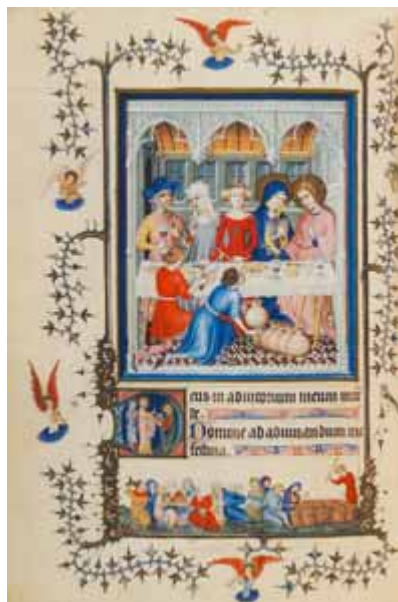 Deus in adiutorium meum inten
de.
Domine ad adiuuandum me
festina.